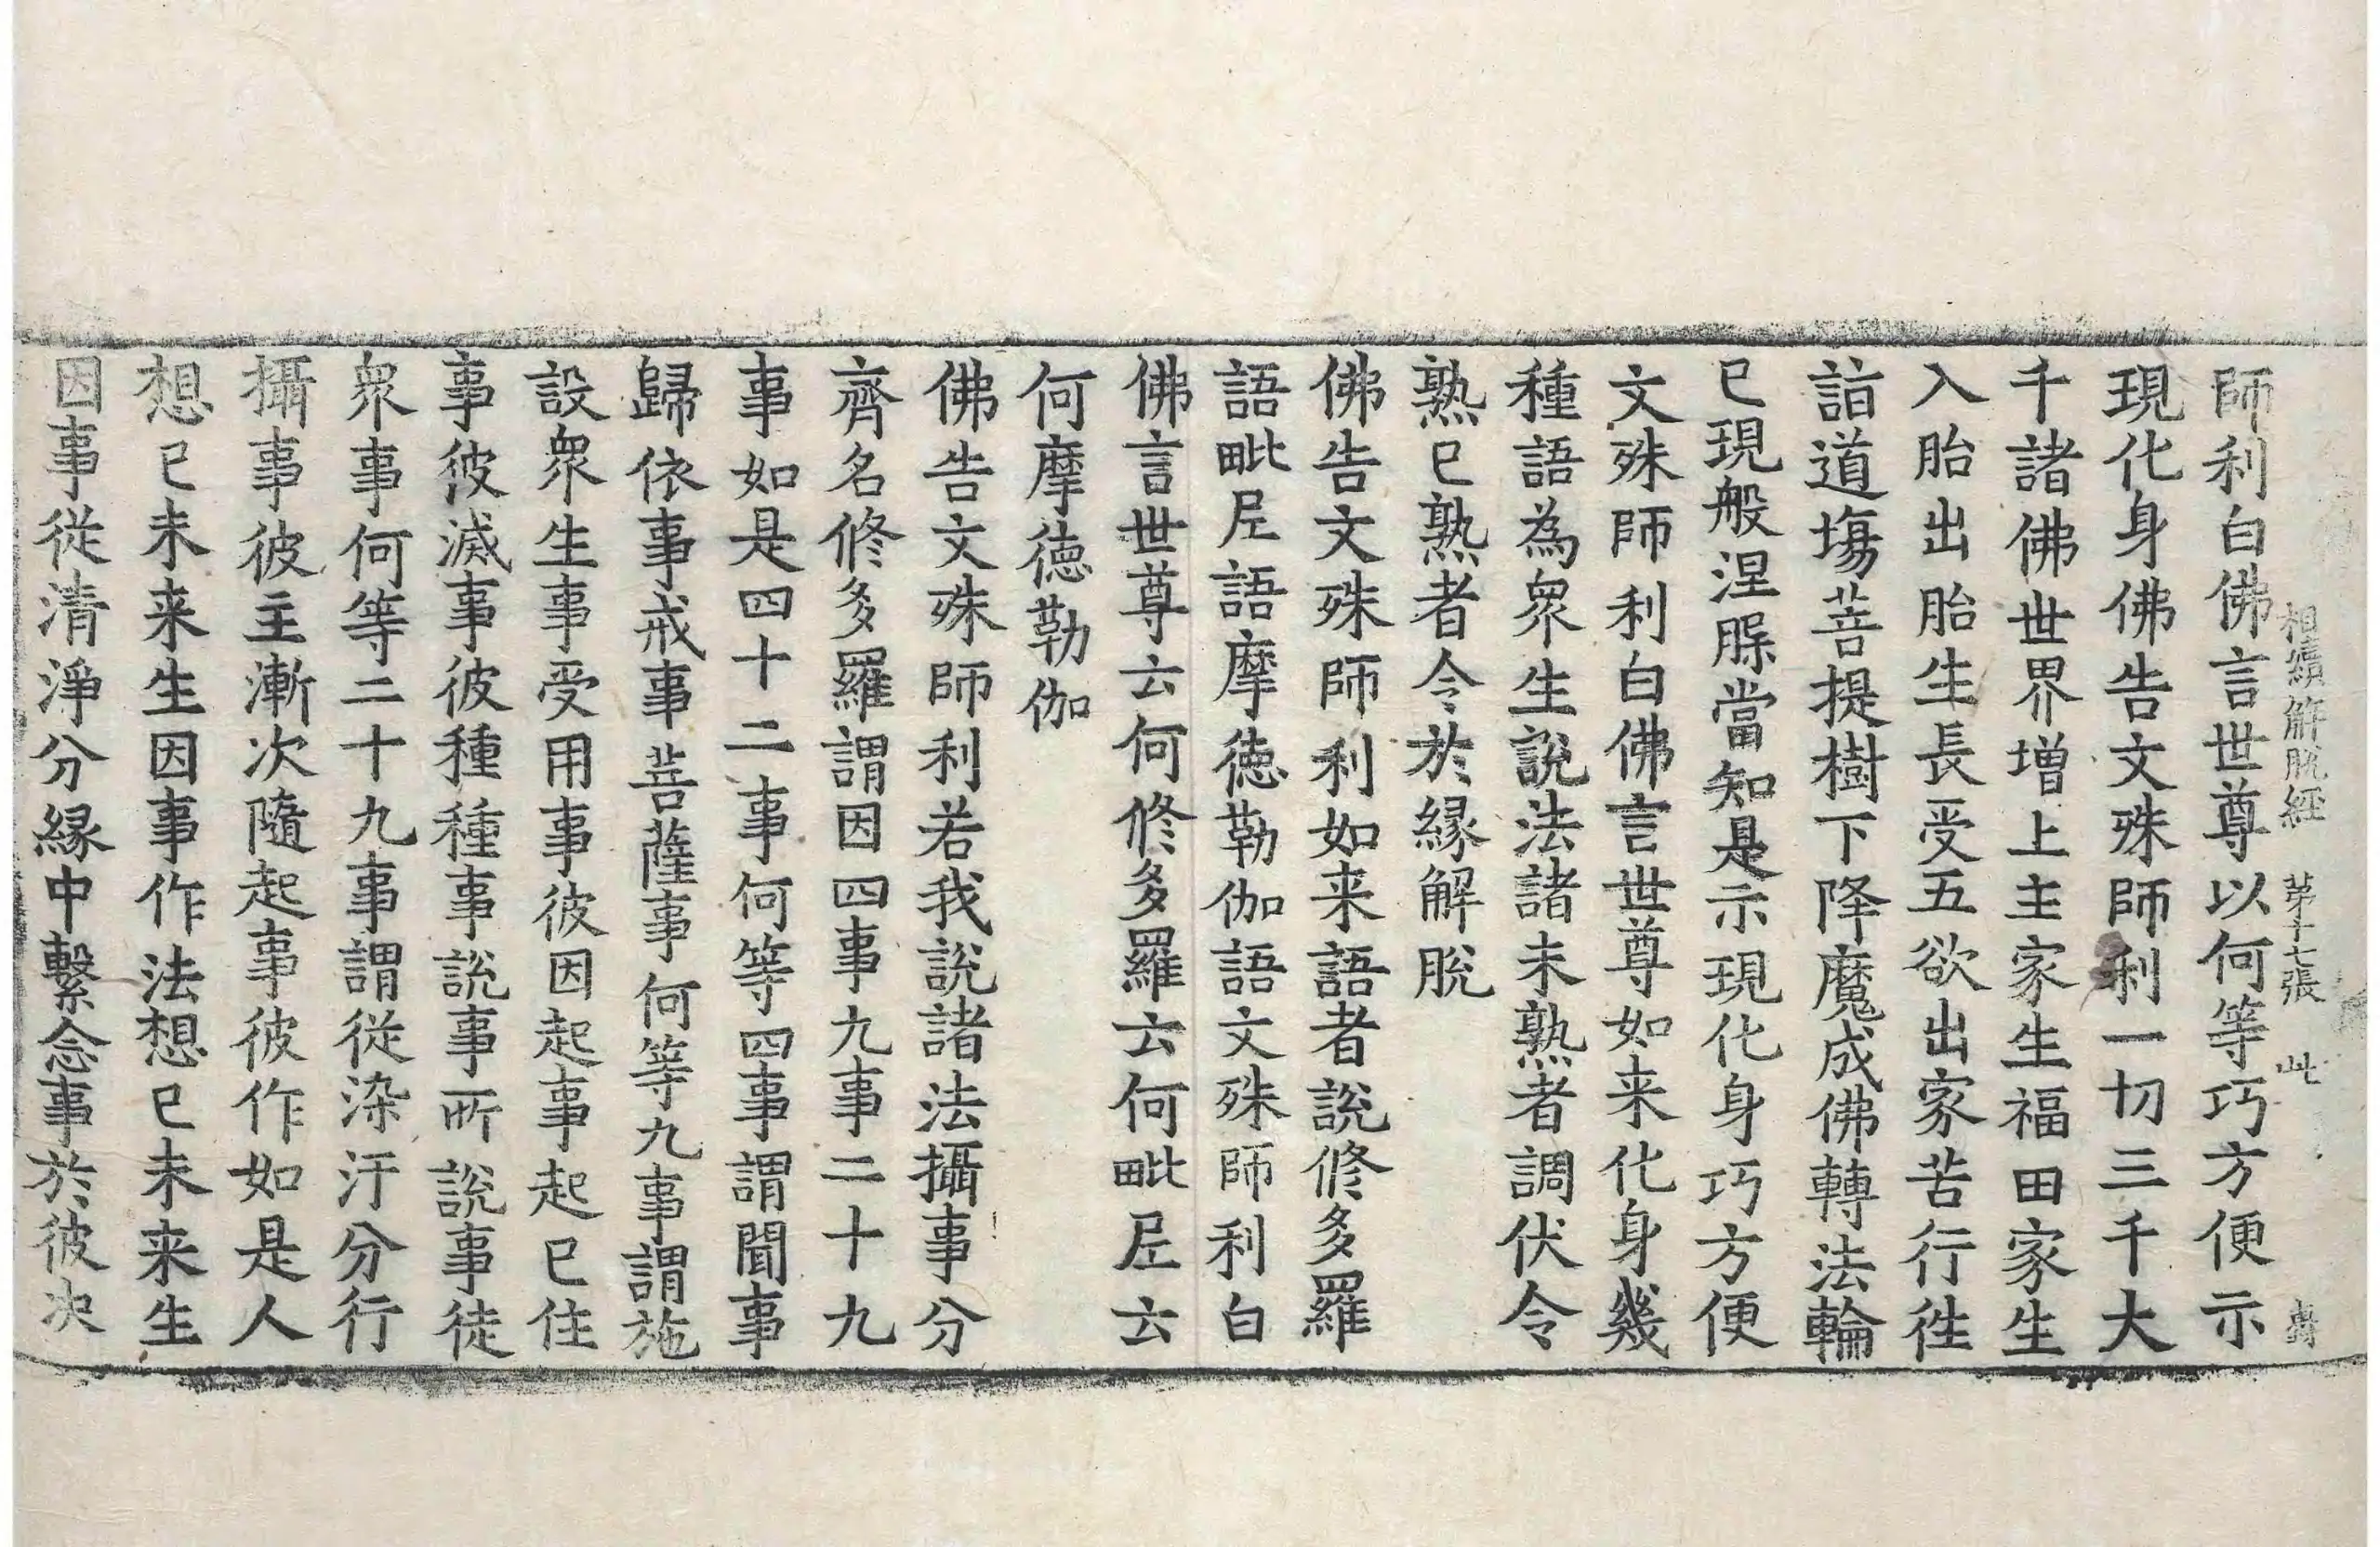 相續解脫經　第十七張　此
師利白佛言世尊以何等巧方便示
現化身佛告文殊師利一切三千大
千諸佛世界增上主家生福田家生
入胎出胎生長受五欲出家苦行徃
詣道塲菩提樹下降魔成佛轉法輪
已現般涅槃當知是示現化身巧方便
文殊師利白佛言世尊如来化身幾
種語為衆生說法諸未熟者調伏令
熟已熟者令於緣解脫
佛告文殊師利如来語者說修多羅
語毗尼語摩德勒伽語文殊師利白
佛言世尊云何修多羅云何毗尼云
何摩德勒伽
佛告文殊師利若我說諸法攝事分
齊名修多羅謂因四事九事二十九
事如是四十二事何等四事謂聞事
歸依事戒事菩薩事何等九事謂施
設衆生事受用事彼因起事起已住
事彼滅事彼種種事說事所說事徒
衆事何等二十九事謂從染汙分行
攝事彼主漸次隨起事彼作如是人
想已未来生因事作法想已未来生
因事從清淨分緣中繫念事於彼决